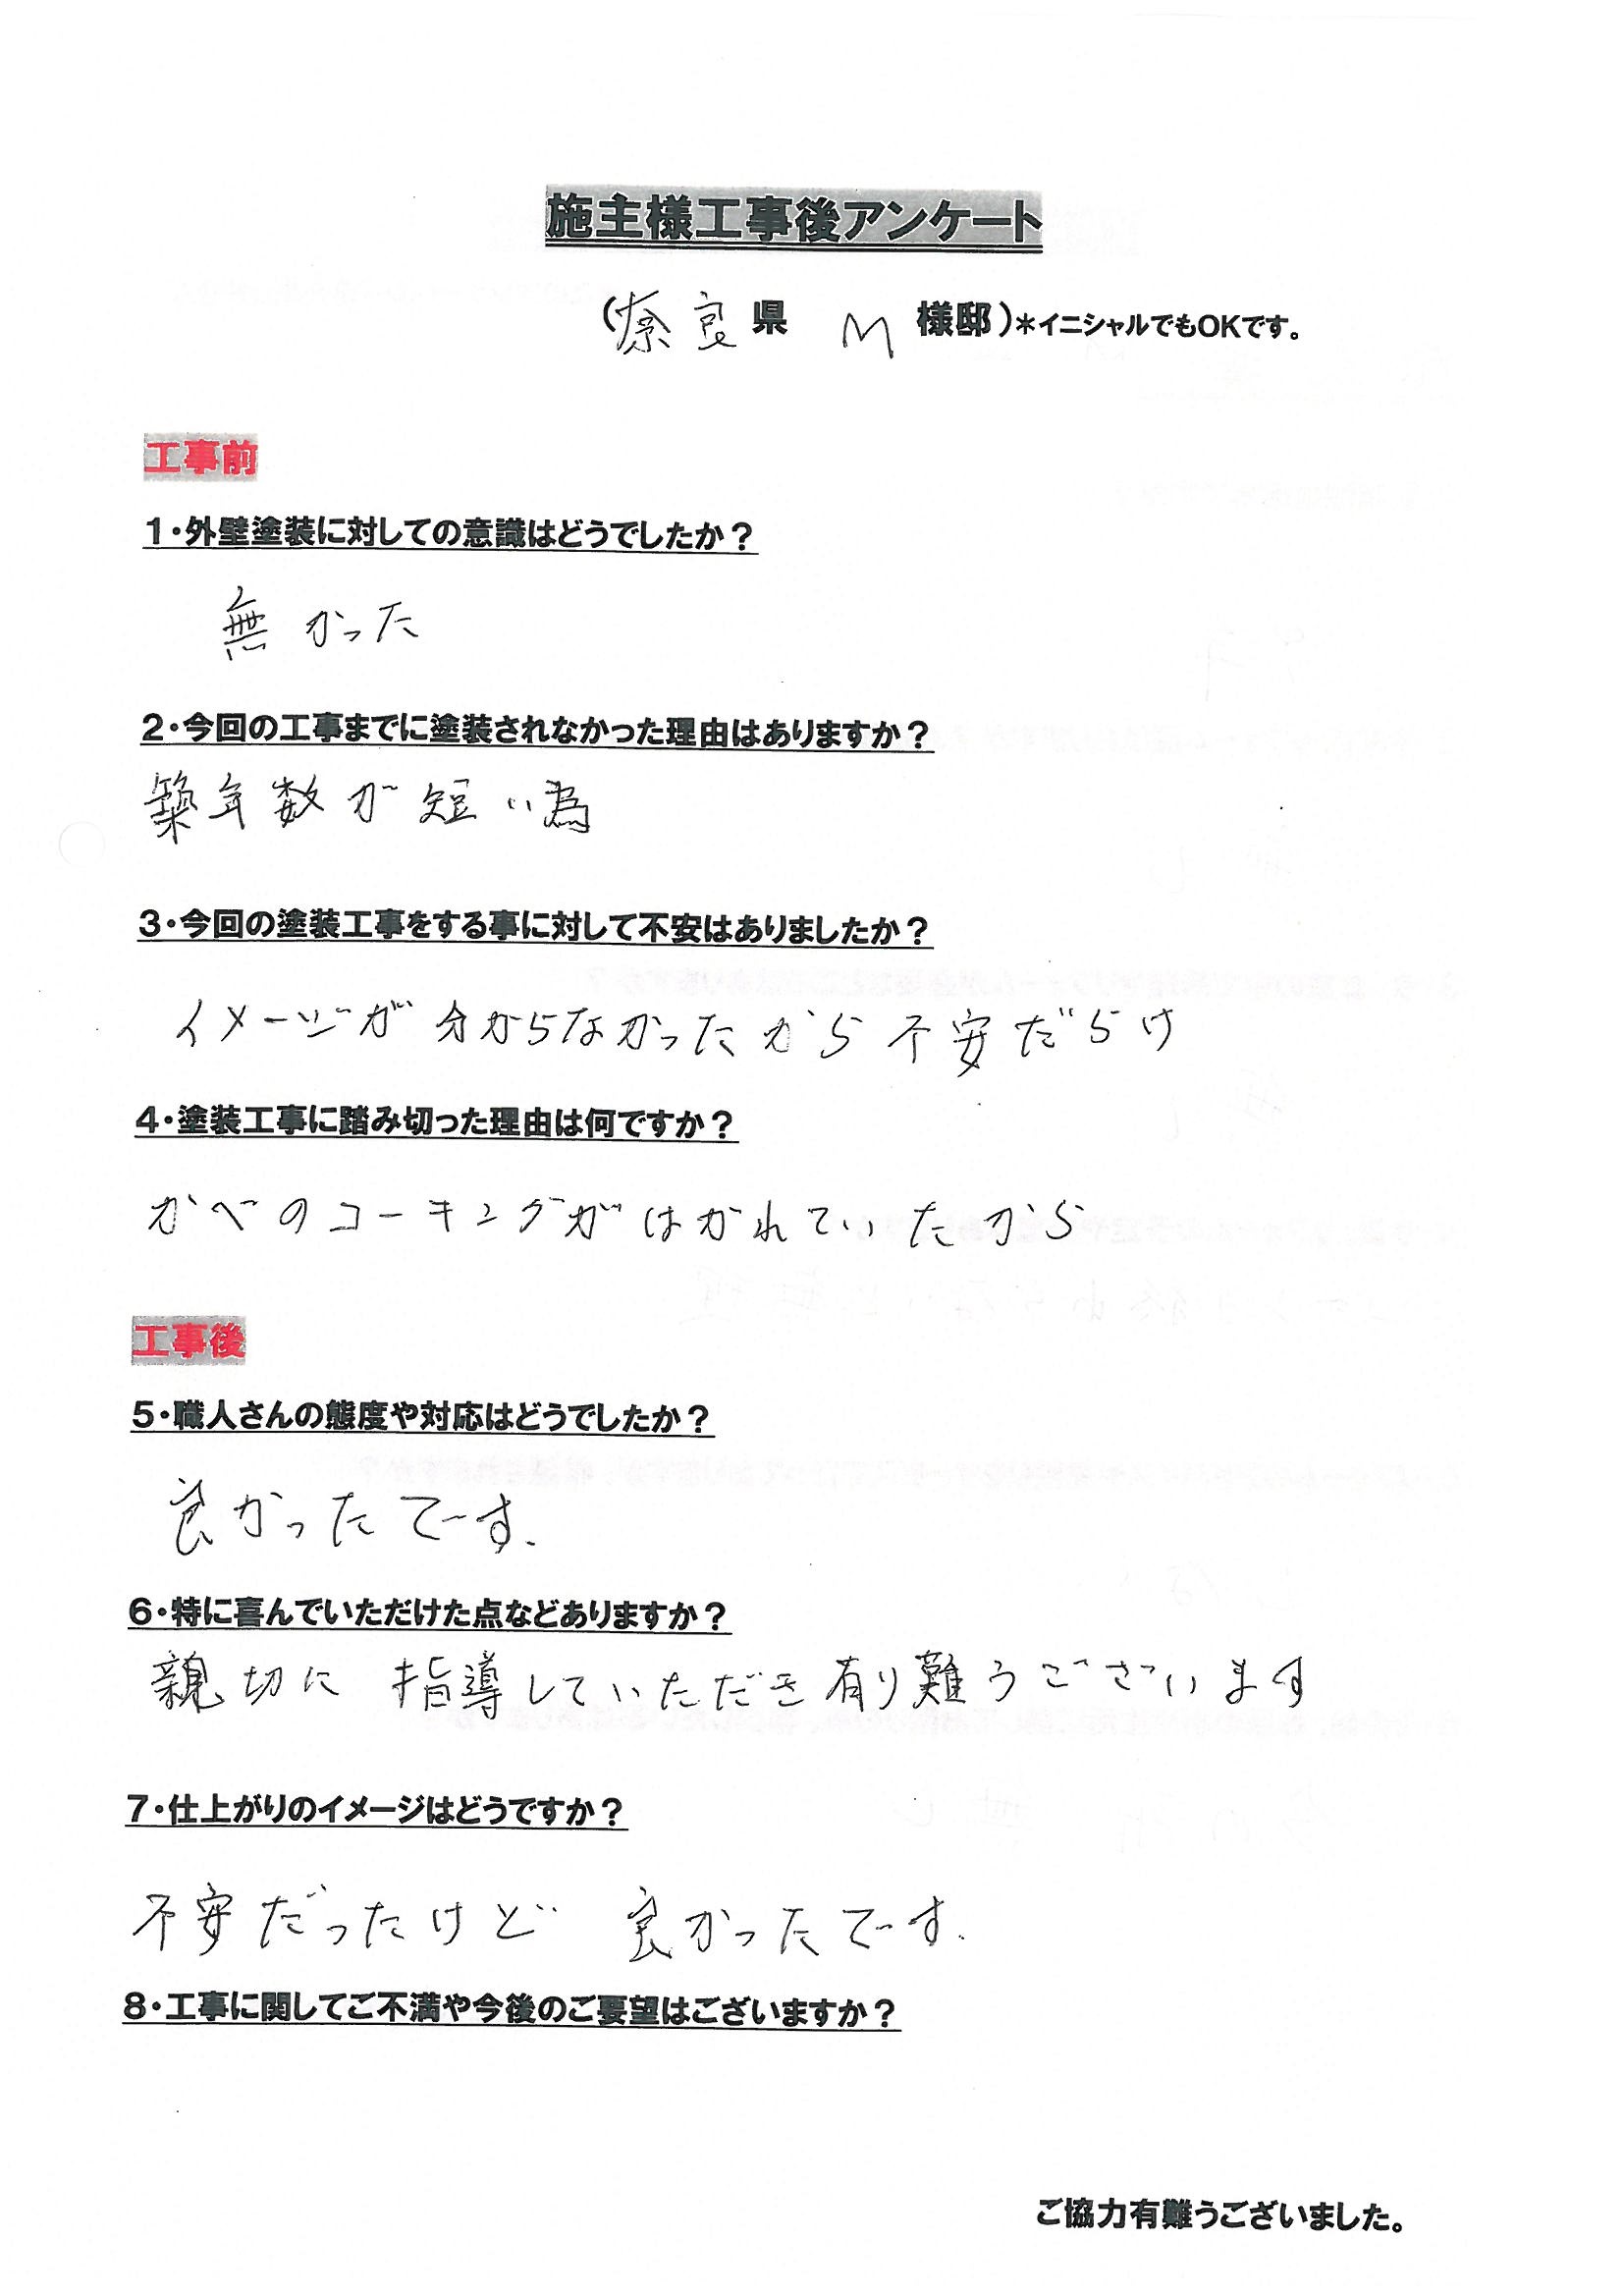 施主様工事後アンケート
(奈良県 M 様邸)*イニシャルでもOKです。
工事前
1・外壁塗装に対しての意識はどうでしたか?
無かった
2・今回の工事までに塗装されなかった理由はありますか?
築年数が短い為
3・今回の塗装工事をする事に対して不安はありましたか?
イメージが分からなかったから不安だらけ
4・塗装工事に踏み切った理由は何ですか?
かべのコーキングがはがれていたから
工事後
5・職人さんの態度や対応はどうでしたか?
良かったです.
6・特に喜んでいただけた点などありますか?
親切に 指導していただき有り難うございます
7・仕上がりのイメージはどうですか?
不安だったけど 良かったです.
8・工事に関してご不満や今後のご要望はございますか?
ご協力有難うございました。